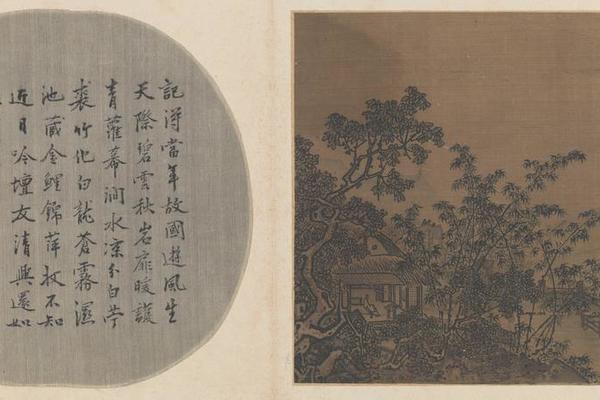 記得當年故國遊風生
天際碧雲秋岩扉暖護
青蘿幕澗水涼分白苧
裘竹化白龍蒼霧濕
池藏金鯉錦萍收不知
近日吟壇友清興還如